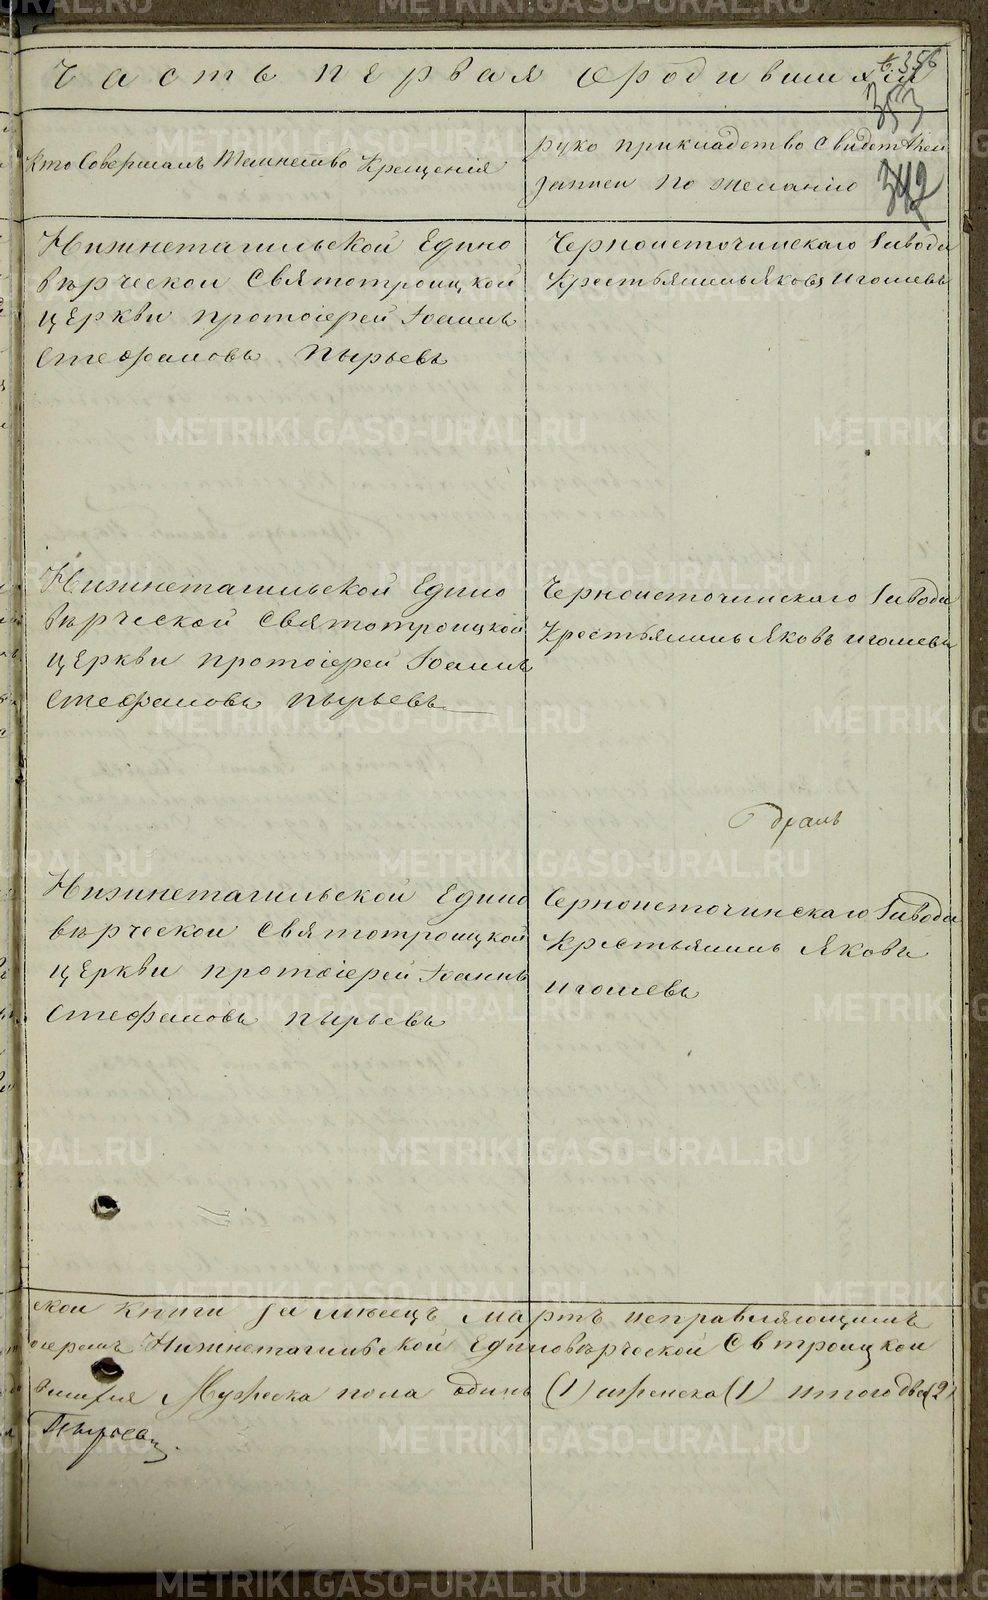 Часть первая о родившихся
356
353
342
Кто совершалъ таинство крещенія
рукоприкладство свидетелей
записи по желанію
Нижнетагильской Едино
вѣрческой Святотроицкой
церкви протоіерей Іоаннъ
Стефановъ Пырьевъ
Черноисточинскаго Завода
Крестьянинъ Яковъ Игошевъ
Нижнетагильской Едино
вѣрческой Святотроицкой
церкви протоіерей Іоаннъ
Стефановъ Пырьевъ
Черноисточинскаго Завода
Крестьянинъ Яковъ Игошевъ
Нижнетагильской Едино
вѣрческой Святотроицкой
церкви протоіерей Іоаннъ
Стефановъ Пырьевъ
Черноисточинскаго Завода
Крестьянинъ Яковъ
Игошевъ
ской книги за мѣсецъ Мартъ исправляющимъ
оіереемъ Нижнетагильской Единовѣрческой Свтроицкой
вшихся Мужеска пола одинъ (1) женска (1) итого два (2)
Пырьевъ
METRIKI.GASO-URAL.RU